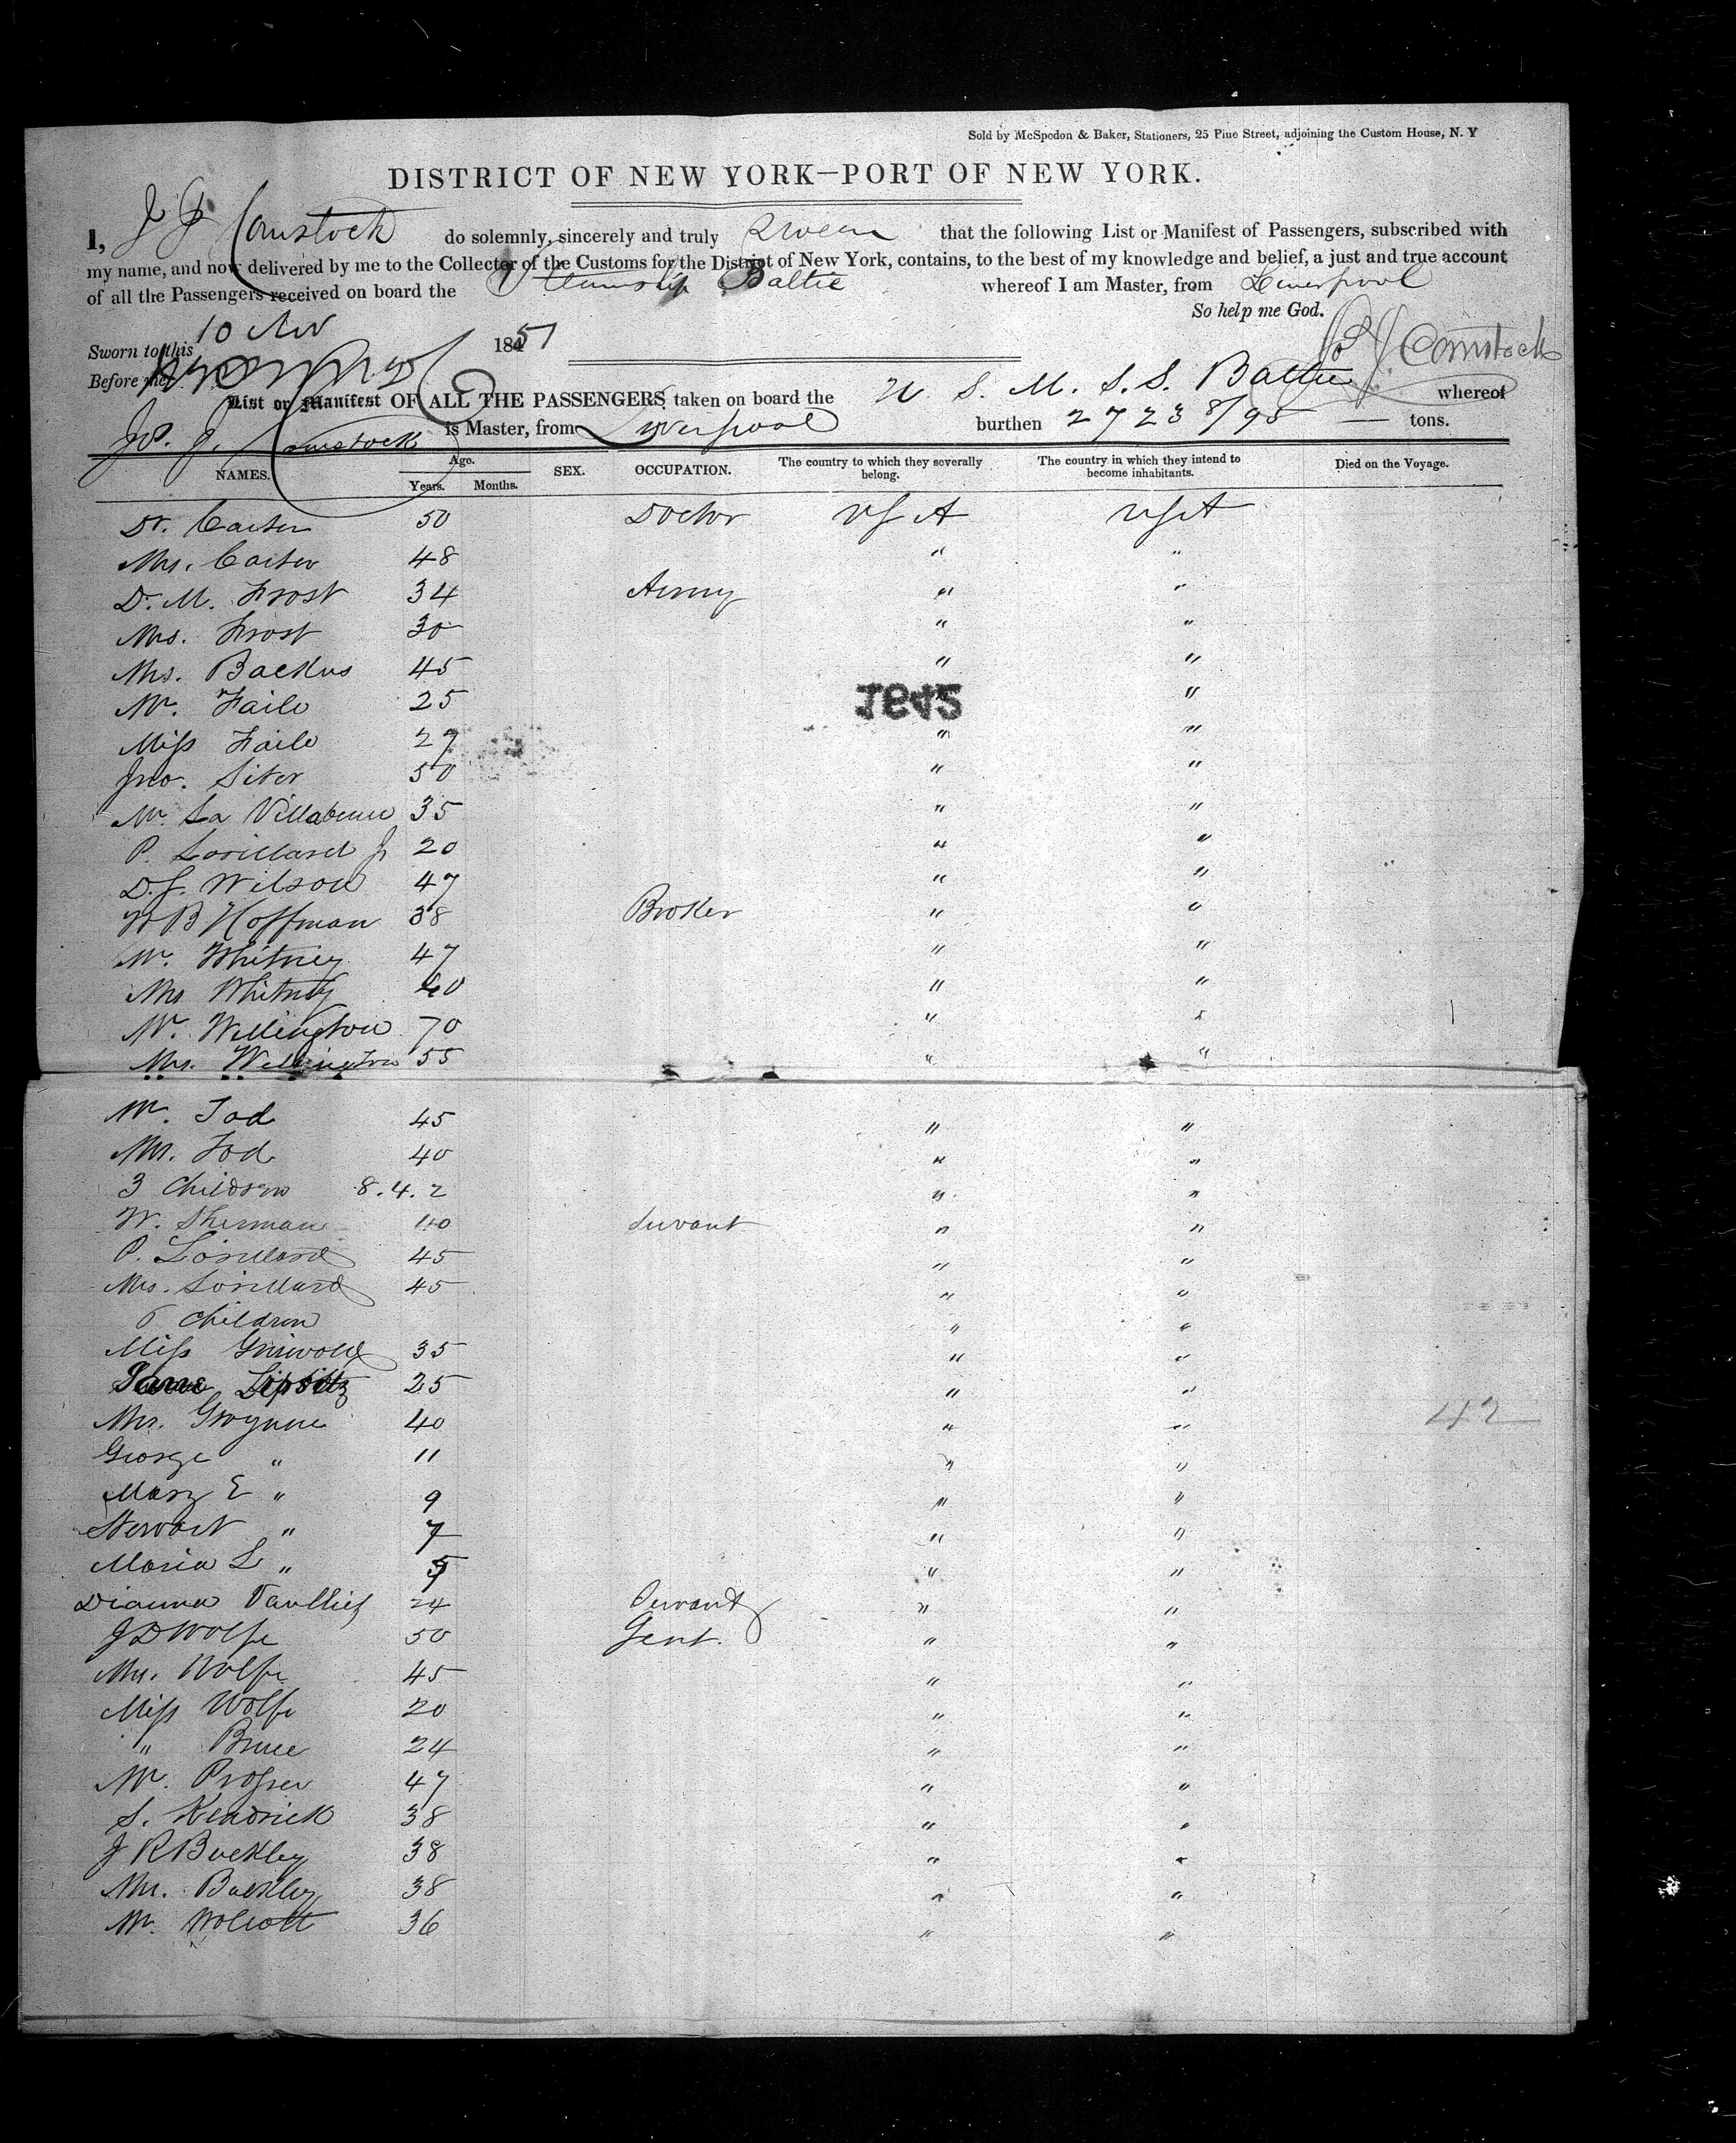 Sold by McSpedon & Baker, Stationers, 25 Pine Street, adjoining the Custom House, N. Y
DISTRICT OF NEW YORK—PORT OF NEW YORK.
I, J J Comstock do solemnly, sincerely and truly swear that the following List or Manifest of Passengers, subscribed with
my name, and now delivered by me to the Collector of the Customs for the District of New York, contains, to the best of my knowledge and belief, a just and true account
of all the Passengers received on board the Steamship Baltic whereof I am Master, from Liverpool
So help me God.
Sworn to this 10 Nov 1851
J J Comstock
Before me
List or Manifest OF ALL THE PASSENGERS taken on board the U S. M. S.S. Baltic whereof
Jos. J. Comstock is Master, from Liverpool burthen 2723 8/95 — tons.
NAMES. Age. Years. Months. SEX. OCCUPATION. The country to which they severally belong. The country in which they intend to become inhabitants. Died on the Voyage.
Dr. Carter 50 Doctor USA USA
Mrs. Carter 48 " "
D. M. Frost 34 Army " "
Mrs. Frost 30 " "
Mrs. Backus 45 " "
Mr. Faile 25 " "
Miss Faile 27 " "
Jno. Siter 50 " "
Mr. La 35 " "
P. Lorillard Jr 20 " "
D. J. Wilson 47 " "
W B Hoffman 38 Broker " "
Mr. Whitney 47 " "
Mrs Whitney 40 " "
Mr. Wellington 70 " "
Mrs. Wellington 55 " "
Mr. Tod 45 " "
Mrs. Tod 40 " "
3 Children 8. 4. 2 " "
W. Sherman 40 Servant " "
P. Lorillard 45 " "
Mrs. Lorillard 45 " "
6 children " "
Miss Griswold 35 " "
Jane Lipsitz 25 " "
Mrs. Gwynne 40 " " 42
George " 11 " "
Mary E " 9 " "
Stewart " 7 " "
Maria L " 5 " "
Dianna 24 Servant " "
J D Wolfe 50 Gent. " "
Mrs. Wolfe 45 " "
Miss Wolfe 20 " "
" Bruce 24 " "
Mr. Prosser 47 " "
S. Kendrick 38 " "
J R Buckley 38 " "
Mrs. Buckley 38 " "
Mr. Wolcott 36 " "